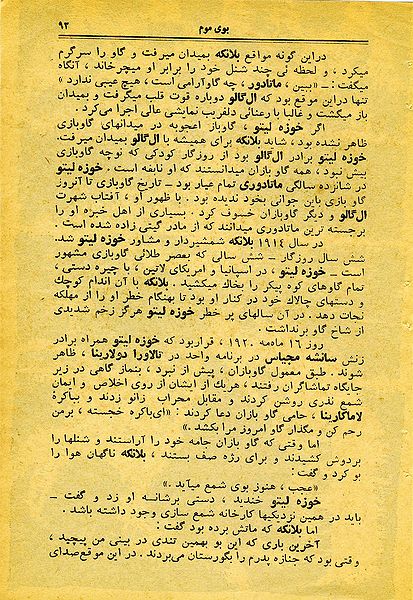 بوی موم ۹۳
دراین گونه مواقع بلانکه بمیدان میرفت و گاو را سرگرم
میکرد ، و لحظه ئی چند شنل خود را برابر او میچرخاند ، آنگاه
میگفت : ـ «ببین ، ماتادور ، چه گاوآرامی است ، هیچ عیبی ندارد »
تنها دراین موقع بود که ال‌گالو دوباره قوت قلب میگرفت و بمیدان
باز میگشت و غالبا با رعنائی دلفریب نمایشی عالی اجرا می‌کرد .
اگر خوزه لیتو ، گاوباز اعجوبه در میدانهای گاوبازی
ظاهر نشده بود ، شاید بلانکه برای همیشه با ال‌گالو بمیدان میرفت.
خوزه لیتو برادر ال‌گالو بود از روزگار کودکی که نوچه گاوبازی
بیش نبود ، همه گاو بازان میدانستند که او نابغه است . خوزه لیتو
در شانزده سالگی ماتادوری تمام عیار بود ـ تاریخ گاوبازی تا آنروز
گاو بازی باین جوانی بخود ندیده بود . با ظهور او ، آفتاب شهرت
ال‌گالو و دیگر گاوبازان خسوف کرد . بسیاری از اهل خبره او را
برجسته ترین ماتادوری میدانند که از مادر گیتی زاده شده است .
در سال ۱۹۱۴ بلانکه شمشیردار و مشاور خوزه لیتو شد.
شش سال روزگار ـ شش سالی که بعصر طلائی گاوبازی مشهور
است ـ خوزه لیتو ، در اسپانیا و امریکای لاتین ، با چیره دستی ،
تمام گاوهای کوه پیکر را بخاک میکشید . بلانکه با آن اندام کوچک
و دستهای چالاک خود در کنار او بود تا بهنگام خطر او را از مهلکه
نجات دهد . در آن سالهای پر خطر خوزه لیتو هرگز زخم شدیدی
از شاخ گاو برنداشت .
روز ۱۶ ماه‌مه ۱۹۲۰ ، قراربود که خوزه لیتو همراه برادر
زنش سانشه مجیاس در برنامه واحد در تالاورا دولارینا ، ظاهر
شوند . طبق معمول گاوبازان ، پیش از نبرد ، بنماز گاهی در زیر
جایگاه تماشاگران رفتند ، هریک از ایشان از روی اخلاص و ایمان
شمع نذری روشن کردند و مقابل محراب زانو زدند و بباکرهٔ
لاماکارینا ، حامی گاو بازان دعا کردند : «ای‌باکره خجسته ، برمن
رحم کن و مگذار گاو امروز مرا بکشد .»
اما وقتی که گاو بازان جامه خود را آراستند و شنلها را
بردوش کشیدند و برای رژه صف بستند ، بلانکه ناگهان هوا را
بو کرد و گفت :
«عجب ، هنوز بوی شمع میآید .»
خوزه لیتو خندید ، دستی برشانه او زد و گفت ـ
باید در همین نزدیکیها کارخانه شمع سازی وجود داشته باشد .
اما بلانکه که ماتش برده بود گفت :
آخرین باری که این بو بهمین تندی در بینی من پیچید ،
وقتی بود که جنازه پدرم را بگورستان می‌بردند . در این موقع‌صدای